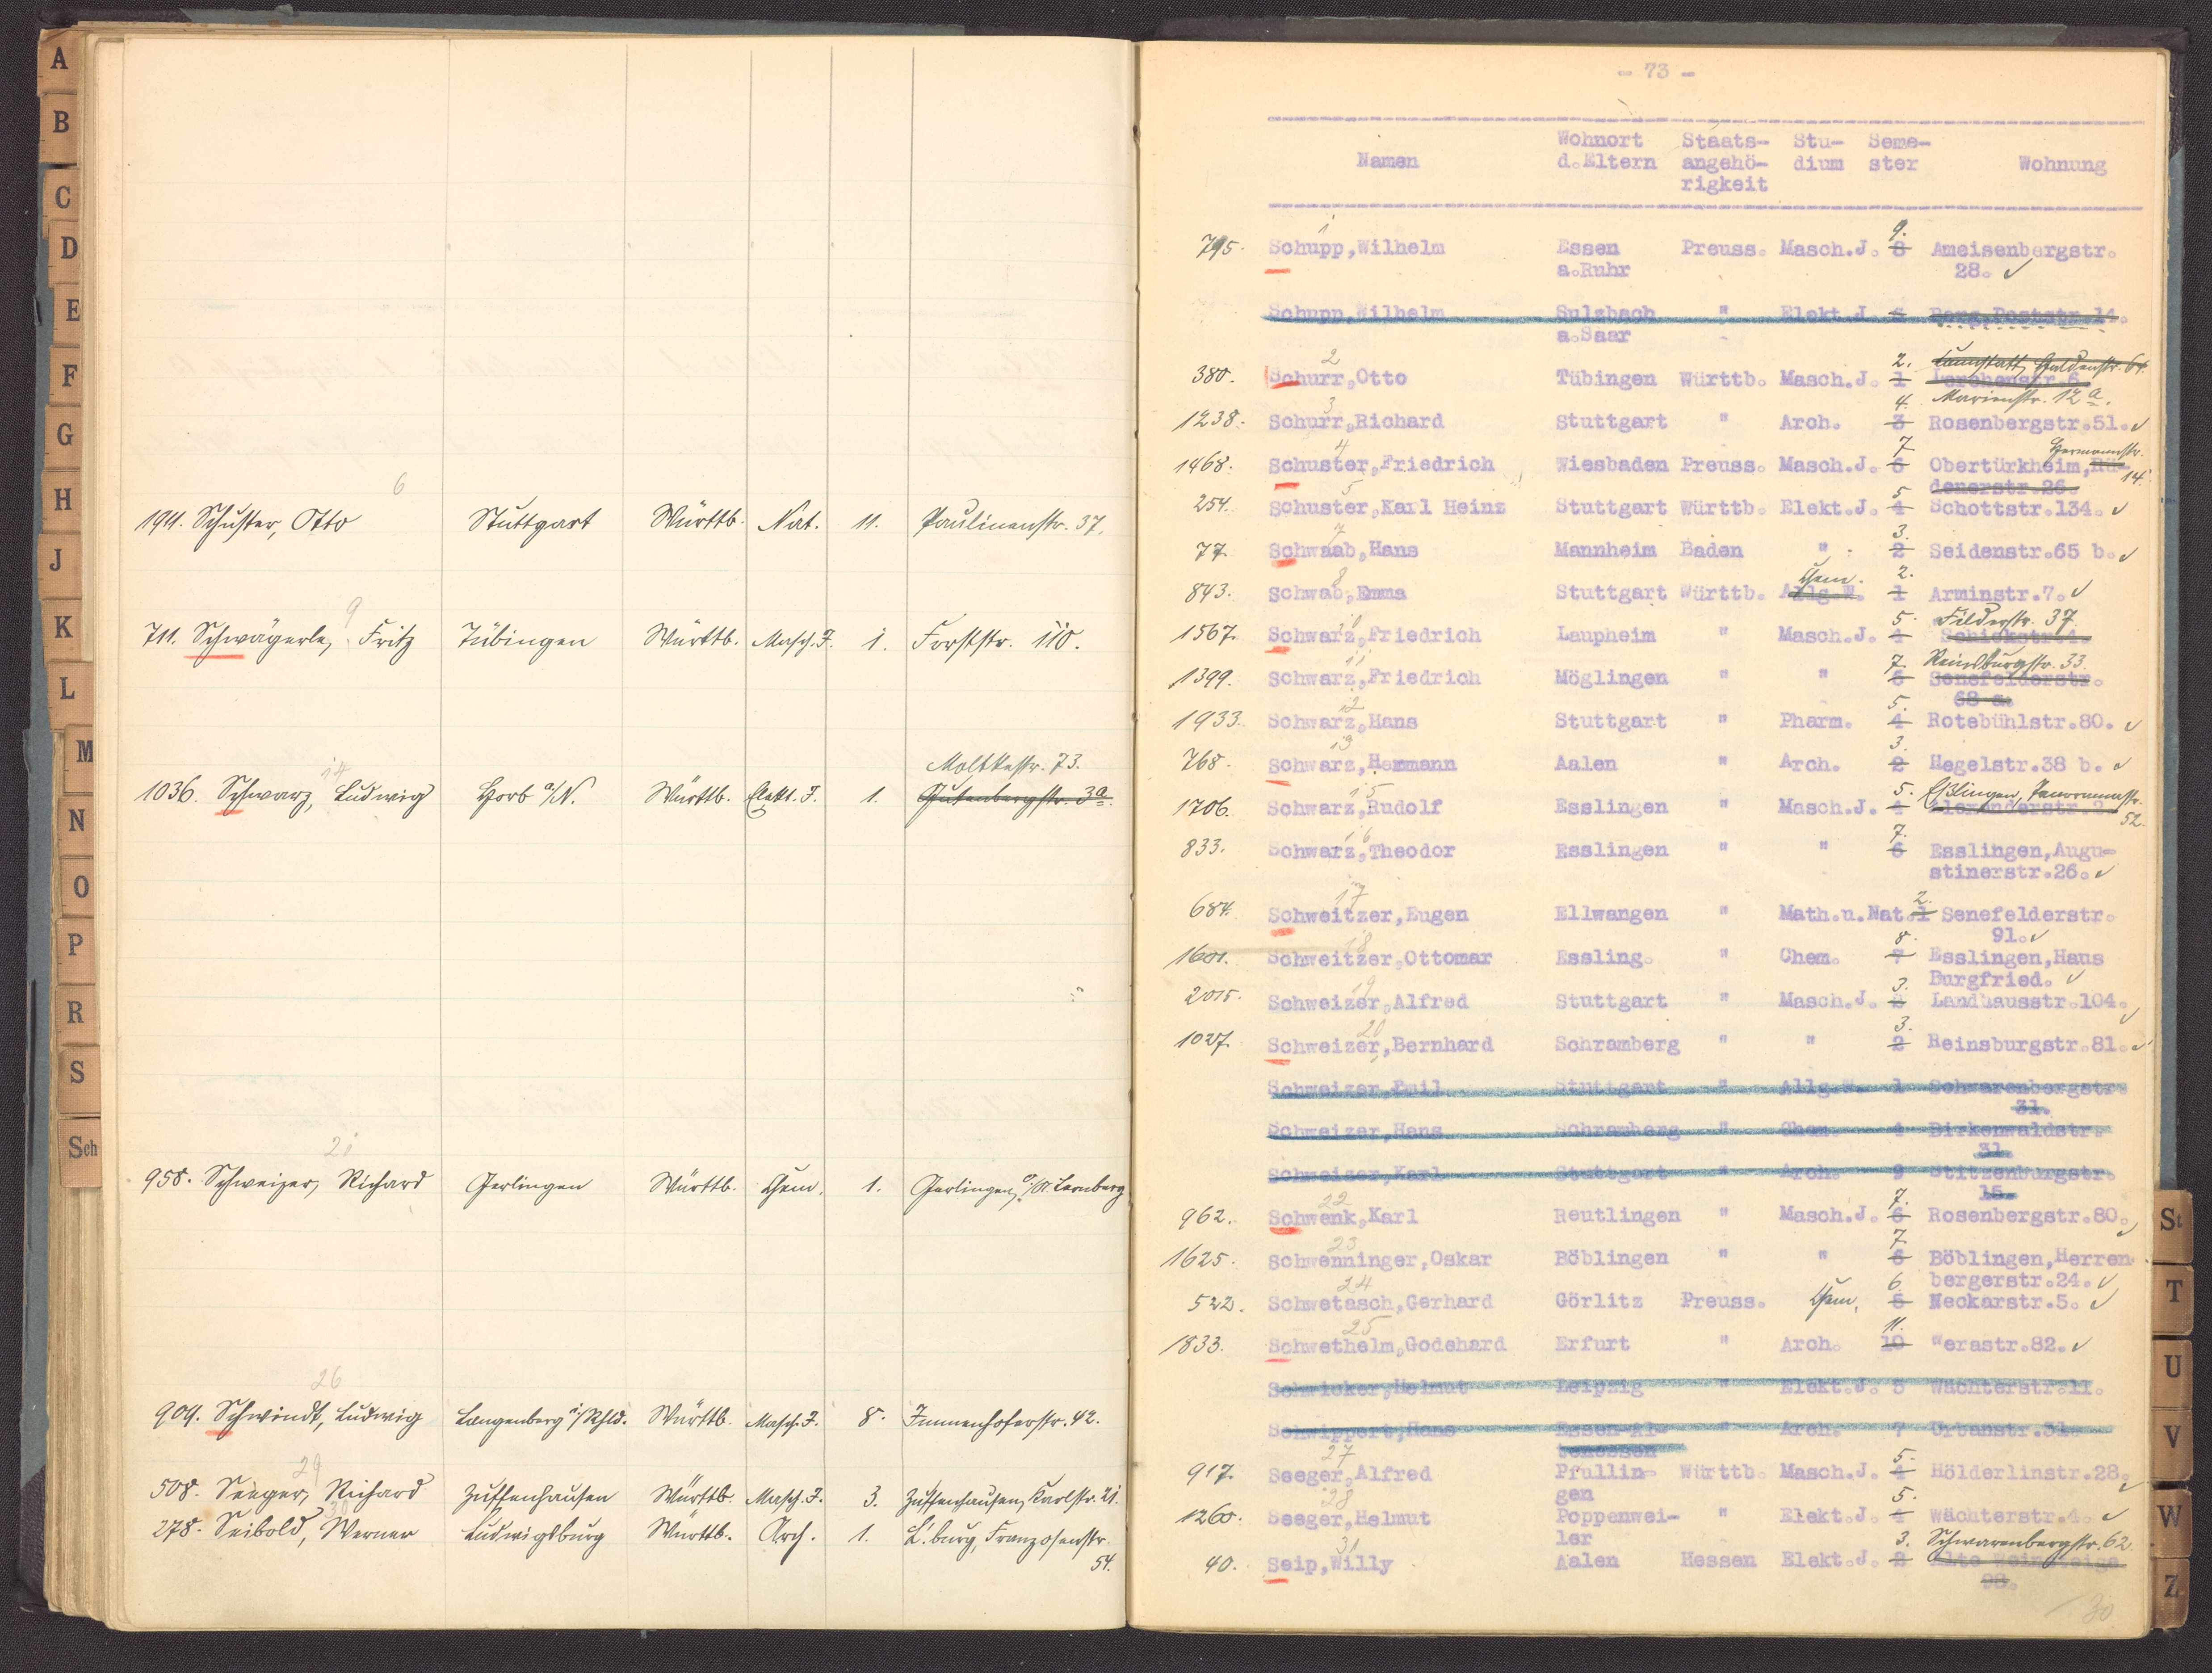 A
B
C
D
E
F
G
H
J
K
L
M
N
O
P
R
S
Sch
6
194. Schuster, Otto Stuttgart Württb. Nat. 11. Paulinenstr. 37.
9
711. Schwägerle, Fritz Tübingen Württb. Masch.J. 1. Forststr. 110.
14
Moltkestr. 73.
1036. Schwarz, Ludwig Horb a/N. Württb. Elekt. J. 1. Gutenbergstr. 3a.
21
958. Schweizer, Richard Gerlingen Württb. Chem. 1. Gerlingen, O/A. Leonberg
26
904. Schwindt, Ludwig Langenberg i/Rhld. Württb. Masch.J. 8. Immenhoferstr. 42.
29
508. Seeger, Richard Zuffenhausen Württb. Masch.J. 3. Zuffenhausen, Karlstr. 21.
30
278. Seibold, Werner Ludwigsburg Württb. Arch. 1. L'burg, Franzosenstr.
54.
- 73 -
Wohnort Staats- Stu- Seme-
Namen d.Eltern angehö- dium ster Wohnung
rigkeit
1 9.
795. Schupp,Wilhelm Essen Preuss. Masch.J. 8 Ameisenbergstr.
a.Ruhr 28. ✓
Schupp,Wilhelm Sulzbach " Elekt.J. Berg,Poststr.14.
a.Saar
2 2. Cannstatt, Guldenstr. 64.
380. Schurr,Otto Tübingen Württb. Masch.J. 1 Lerchenstr.6
3 4. Marienstr. 12 a.
1238. Schurr,Richard Stuttgart " Arch. 3 Rosenbergstr.51. ✓
4 7 Hermannstr.
1468. Schuster,Friedrich Wiesbaden Preuss. Masch.J. 6 Obertürkheim,Rü-
14.
5 5 denerstr.26.
254. Schuster,Karl Heinz Stuttgart Württb. Elekt.J. 4 Schottstr.134. ✓
7 3.
77. Schwaab,Hans Mannheim Baden " 2 Seidenstr.65 b. ✓
8 Chem. 2.
843. Schwab,Emma Stuttgart Württb. Allg.W. 1 Arminstr.7. ✓
10 5. Filderstr. 37.
1567. Schwarz,Friedrich Laupheim " Masch.J. 4 Schickstr.4.
11 7. Reinsburgstr. 33.
1399. Schwarz,Friedrich Möglingen " " 6 Senefelderstr.
68 a.
12 5.
1933. Schwarz,Hans Stuttgart " Pharm. 4 Rotebühlstr.80. ✓
13 3.
768. Schwarz,Hermann Aalen " Arch. 2 Hegelstr.38 b. ✓
15 5. Eßlingen, Panoramastr.
1706. Schwarz,Rudolf Esslingen " Masch.J. 4 Alexanderstr.2
52.
16 7.
833. Schwarz,Theodor Esslingen " " 6 Esslingen,Augu-
stinerstr.26. ✓
17 2.
684. Schweitzer,Eugen Ellwangen " Math.u.Nat.1 Senefelderstr.
91. ✓
18 8.
1601. Schweitzer,Ottomar Essling. " Chem. 7 Esslingen,Haus
Burgfried. ✓
19 3.
2015. Schweizer,Alfred Stuttgart " Masch.J. 2 Landhausstr.104. ✓
20 3.
1027. Schweizer,Bernhard Schramberg " " 2 Reinsburgstr.81. ✓
Schweizer,Emil Stuttgart " Allg.W. 1 Schwarenbergstr.
31.
Schweizer,Hans Schramberg " Chem. 4 Birkenwaldstr.
31
Schweizer,Karl Stuttgart " Arch. 9 Stitzenburgstr.
15.
22 7.
962. Schwenk,Karl Reutlingen " Masch.J. 6 Rosenbergstr.80. ✓
23 7.
1625. Schwenninger,Oskar Böblingen " " 6 Böblingen,Herren
bergerstr.24. ✓
24 6.
522. Schwetasch,Gerhard Görlitz Preuss. Chem. 5 Neckarstr.5. ✓
25 11.
1833. Schwethelm,Godehard Erfurt " Arch. 10 Werastr.82. ✓
Schwicker,Helmut Leipzig " Elekt.J. 5 Wächterstr.11.
Schwippert,Hans Essen-Al- " Arch. 7 Urbanstr.31.
tenessen
27 5.
917. Seeger,Alfred Pfullin- Württb. Masch.J. 4 Hölderlinstr.28. ✓
gen
28 5.
1260. Seeger,Helmut Poppenwei- " Elekt.J. 4 Wächterstr.4. ✓
ler
31 3. Schwarenbergstr. 62.
40. Seip,Willy Aalen Hessen Elekt.J. 2 Alte Weinsteige
98.
30
St
T
U
V
W
Z